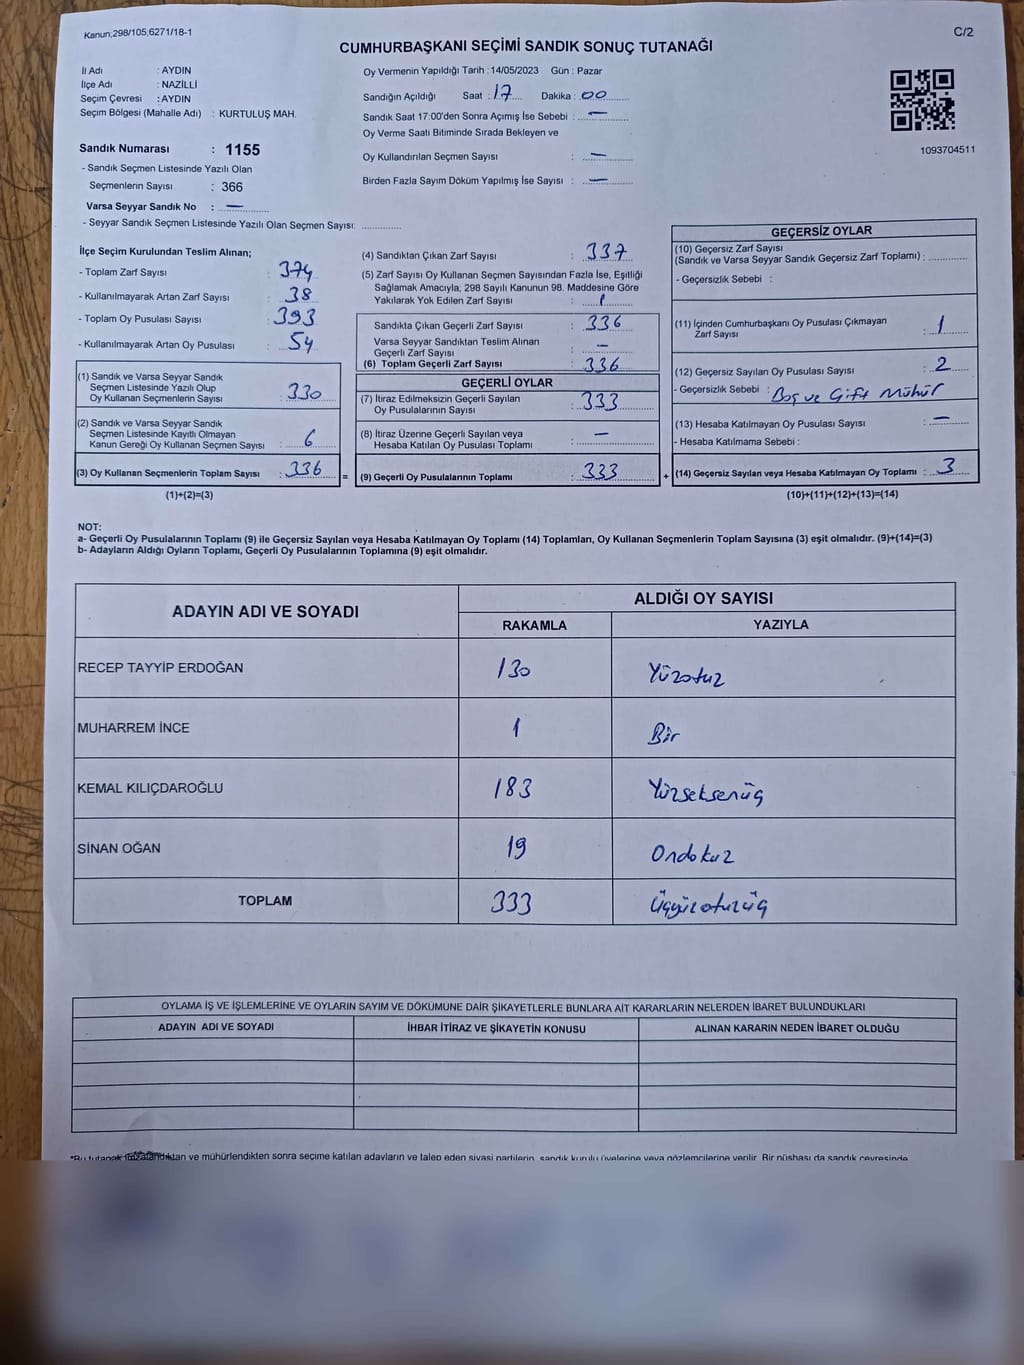 Kanun,298/105,6271/18-1
C/2
CUMHURBAŞKANI SEÇİMİ SANDIK SONUÇ TUTANAĞI
İl Adı : AYDIN
İlçe Adı : NAZİLLİ
Seçim Çevresi : AYDIN
Seçim Bölgesi (Mahalle Adı) : KURTULUŞ MAH.
Sandık Numarası : 1155
- Sandık Seçmen Listesinde Yazılı Olan
Seçmenlerin Sayısı : 366
Varsa Seyyar Sandık No : —
- Seyyar Sandık Seçmen Listesinde Yazılı Olan Seçmen Sayısı: ..............
Oy Vermenin Yapıldığı Tarih :14/05/2023 Gün : Pazar
Sandığın Açıldığı Saat : 17 Dakika : 00
Sandık Saat 17:00'den Sonra Açımış İse Sebebi : —
Oy Verme Saati Bitiminde Sırada Bekleyen ve
Oy Kullandırılan Seçmen Sayısı : —
Birden Fazla Sayım Döküm Yapılmış İse Sayısı : —
1093704511
İlçe Seçim Kurulundan Teslim Alınan;
- Toplam Zarf Sayısı : 374
- Kullanılmayarak Artan Zarf Sayısı : 38
- Toplam Oy Pusulası Sayısı : 393
- Kullanılmayarak Artan Oy Pusulası : 54
(1) Sandık ve Varsa Seyyar Sandık
Seçmen Listesinde Yazılı Olup
Oy Kullanan Seçmenlerin Sayısı : 330
(2) Sandık ve Varsa Seyyar Sandık
Seçmen Listesinde Kayıtlı Olmayan
Kanun Gereği Oy Kullanan Seçmen Sayısı : 6
(3) Oy Kullanan Seçmenlerin Toplam Sayısı : 336 =
(1)+(2)=(3)
(4) Sandıktan Çıkan Zarf Sayısı : 337
(5) Zarf Sayısı Oy Kullanan Seçmen Sayısından Fazla İse, Eşitliği
Sağlamak Amacıyla, 298 Sayılı Kanunun 98. Maddesine Göre
Yakılarak Yok Edilen Zarf Sayısı : 1
Sandıkta Çıkan Geçerli Zarf Sayısı : 336
Varsa Seyyar Sandıktan Teslim Alınan
Geçerli Zarf Sayısı : —
(6) Toplam Geçerli Zarf Sayısı : 336
GEÇERLİ OYLAR
(7) İtiraz Edilmeksizin Geçerli Sayılan
Oy Pusulalarının Sayısı : 333
(8) İtiraz Üzerine Geçerli Sayılan veya
Hesaba Katılan Oy Pusulası Toplamı : —
(9) Geçerli Oy Pusulalarının Toplamı : 333 +
GEÇERSİZ OYLAR
(10) Geçersiz Zarf Sayısı
(Sandık ve Varsa Seyyar Sandık Geçersiz Zarf Toplamı) : ..............
- Geçersizlik Sebebi :
(11) İçinden Cumhurbaşkanı Oy Pusulası Çıkmayan
Zarf Sayısı : 1
(12) Geçersiz Sayılan Oy Pusulası Sayısı : 2
- Geçersizlik Sebebi : Boş ve Çift Mühür
(13) Hesaba Katılmayan Oy Pusulası Sayısı : —
- Hesaba Katılmama Sebebi :
(14) Geçersiz Sayılan veya Hesaba Katılmayan Oy Toplamı : 3
(10)+(11)+(12)+(13)=(14)
NOT:
a- Geçerli Oy Pusulalarının Toplamı (9) ile Geçersiz Sayılan veya Hesaba Katılmayan Oy Toplamı (14) Toplamları, Oy Kullanan Seçmenlerin Toplam Sayısına (3) eşit olmalıdır. (9)+(14)=(3)
b- Adayların Aldığı Oyların Toplamı, Geçerli Oy Pusulalarının Toplamına (9) eşit olmalıdır.
ADAYIN ADI VE SOYADI
ALDIĞI OY SAYISI
RAKAMLA YAZIYLA
RECEP TAYYİP ERDOĞAN 130 Yüzotuz
MUHARREM İNCE 1 Bir
KEMAL KILIÇDAROĞLU 183 Yüzseksenüç
SİNAN OĞAN 19 Ondokuz
TOPLAM 333 Üçyüzotuzüç
OYLAMA İŞ VE İŞLEMLERİNE VE OYLARIN SAYIM VE DÖKÜMÜNE DAİR ŞİKAYETLERLE BUNLARA AİT KARARLARIN NELERDEN İBARET BULUNDUKLARI
ADAYIN ADI VE SOYADI İHBAR İTİRAZ VE ŞİKAYETİN KONUSU ALINAN KARARIN NEDEN İBARET OLDUĞU
*Bu tutanak imzalandıktan ve mühürlendikten sonra seçime katılan adayların ve talep eden siyasi partilerin, sandık kurulu üyelerine veya gözlemcilerine verilir. Bir nüshası da sandık çevresinde